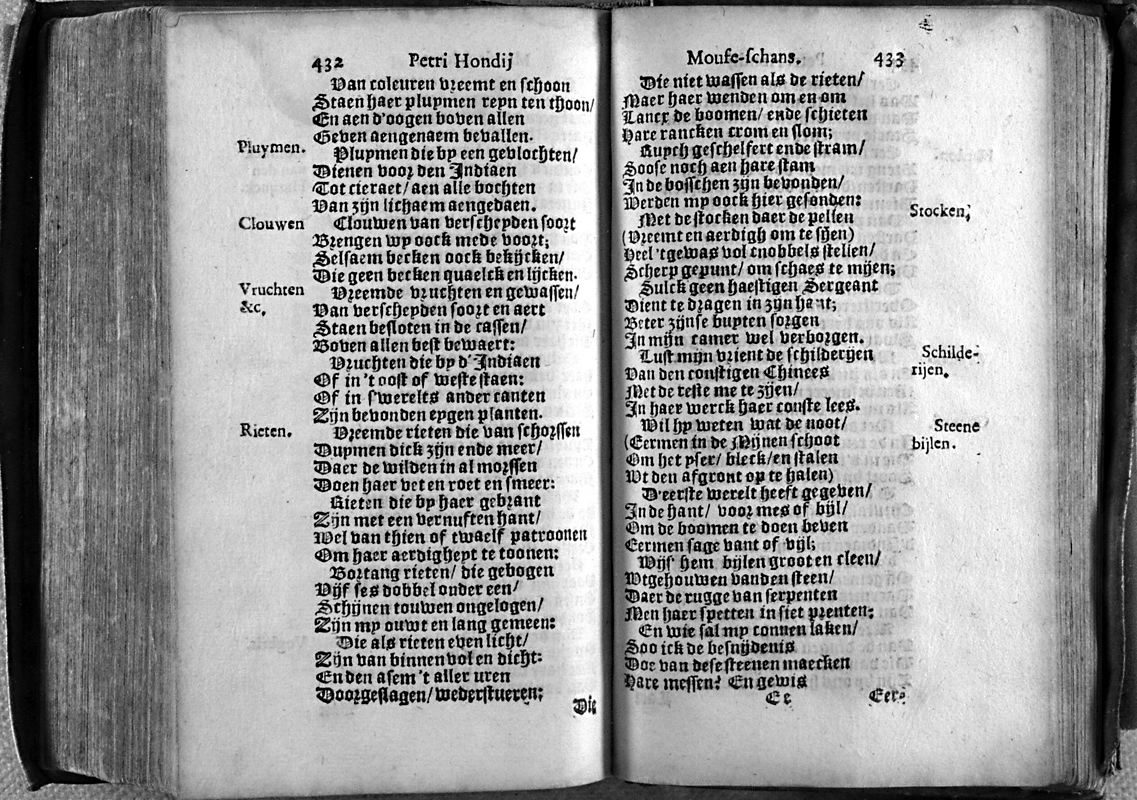 432 Petri Hondij
Van coleuren vreemt en schoon
Staen haer pluymen reyn ten thoon/
En aen d'oogen boven allen
Geven aengenaem bevallen.
Pluymen.
Pluymen die by een gevlochten/
Dienen voor den Indiaen
Tot cieraet/ aen alle bochten
Van zijn lichaem aengedaen.
Clouwen
Clouwen van verscheyden soort
Brengen wy oock mede voort;
Selsaem becken oock bekijcken/
Die geen becken quaelck en lijcken.
Vruchten
&c.
Vreemde vruchten en gewassen/
Van verscheyden soort en aert
Staen besloten in de cassen/
Boven allen best bewaert:
Vruchten die by d'Indiaen
Of in 't oost of weste staen:
Of in s'werelts ander canten
Zijn bevonden eygen planten.
Rieten.
Vreemde rieten die van schorssen
Duymen dick zijn ende meer/
Daer de wilden in al morssen
Doen haer vet en roet en smeer:
Rieten die by haer gebrant
Zijn met een vernuften hant/
Wel van thien of twaelf patroonen
Om haer aerdigheyt te toonen:
Bortang rieten/ die gebogen
Vijf ses dobbel onder een/
Schijnen touwen ongelogen/
Zijn my ouwt en lang gemeen:
Die als rieten even licht/
Zijn van binnen vol en dicht:
En den asem 't aller uren
Doorgeslagen/ wederstueren:
Die
Mouse-schans. 433
Die niet wassen als de rieten/
Maer haer wenden om en om
Lancx de boomen/ ende schieten
Hare rancken crom en slom;
Ruych geschelfert ende stram/
Soose noch aen hare stam
In de bosschen zijn bevonden/
Werden my oock hier gesonden:
Stocken.
Met de stocken daer de pellen
(Vreemt en aerdigh om te sijen)
Heel 'tgewas vol cnobbels stellen/
Scherp gepunt/ om schaes te mijen;
Sulck geen haestigen Sergeant
Dient te dragen in zijn hant;
Beter zijnse buyten sorgen
In mijn camer wel verborgen.
Schilde-
rijen.
Lust mijn vrient de schilderijen
Van den constigen Chinees
Met de reste me te zijen/
In haer werck haer conste lees.
Steene
bijlen.
Wil hy weten wat de noot/
(Eermen in de Mijnen schoot
Om het yser/ bleck/ en stalen
Wt den afgront op te halen)
D'eerste werelt heeft gegeven/
In de hant/ voor mes of bijl/
Om de boomen te doen beven
Eermen sage vant of vijl;
Wijs' hem bijlen groot en cleen/
Wtgehouwen vanden steen/
Daer de rugge van serpenten
Men haer spetten in siet prenten:
En wie sal my connen laken/
Soo ick de besnijdenis
Doe van dese steenen maecken
Hare messen? En gewis
Ee Eer-